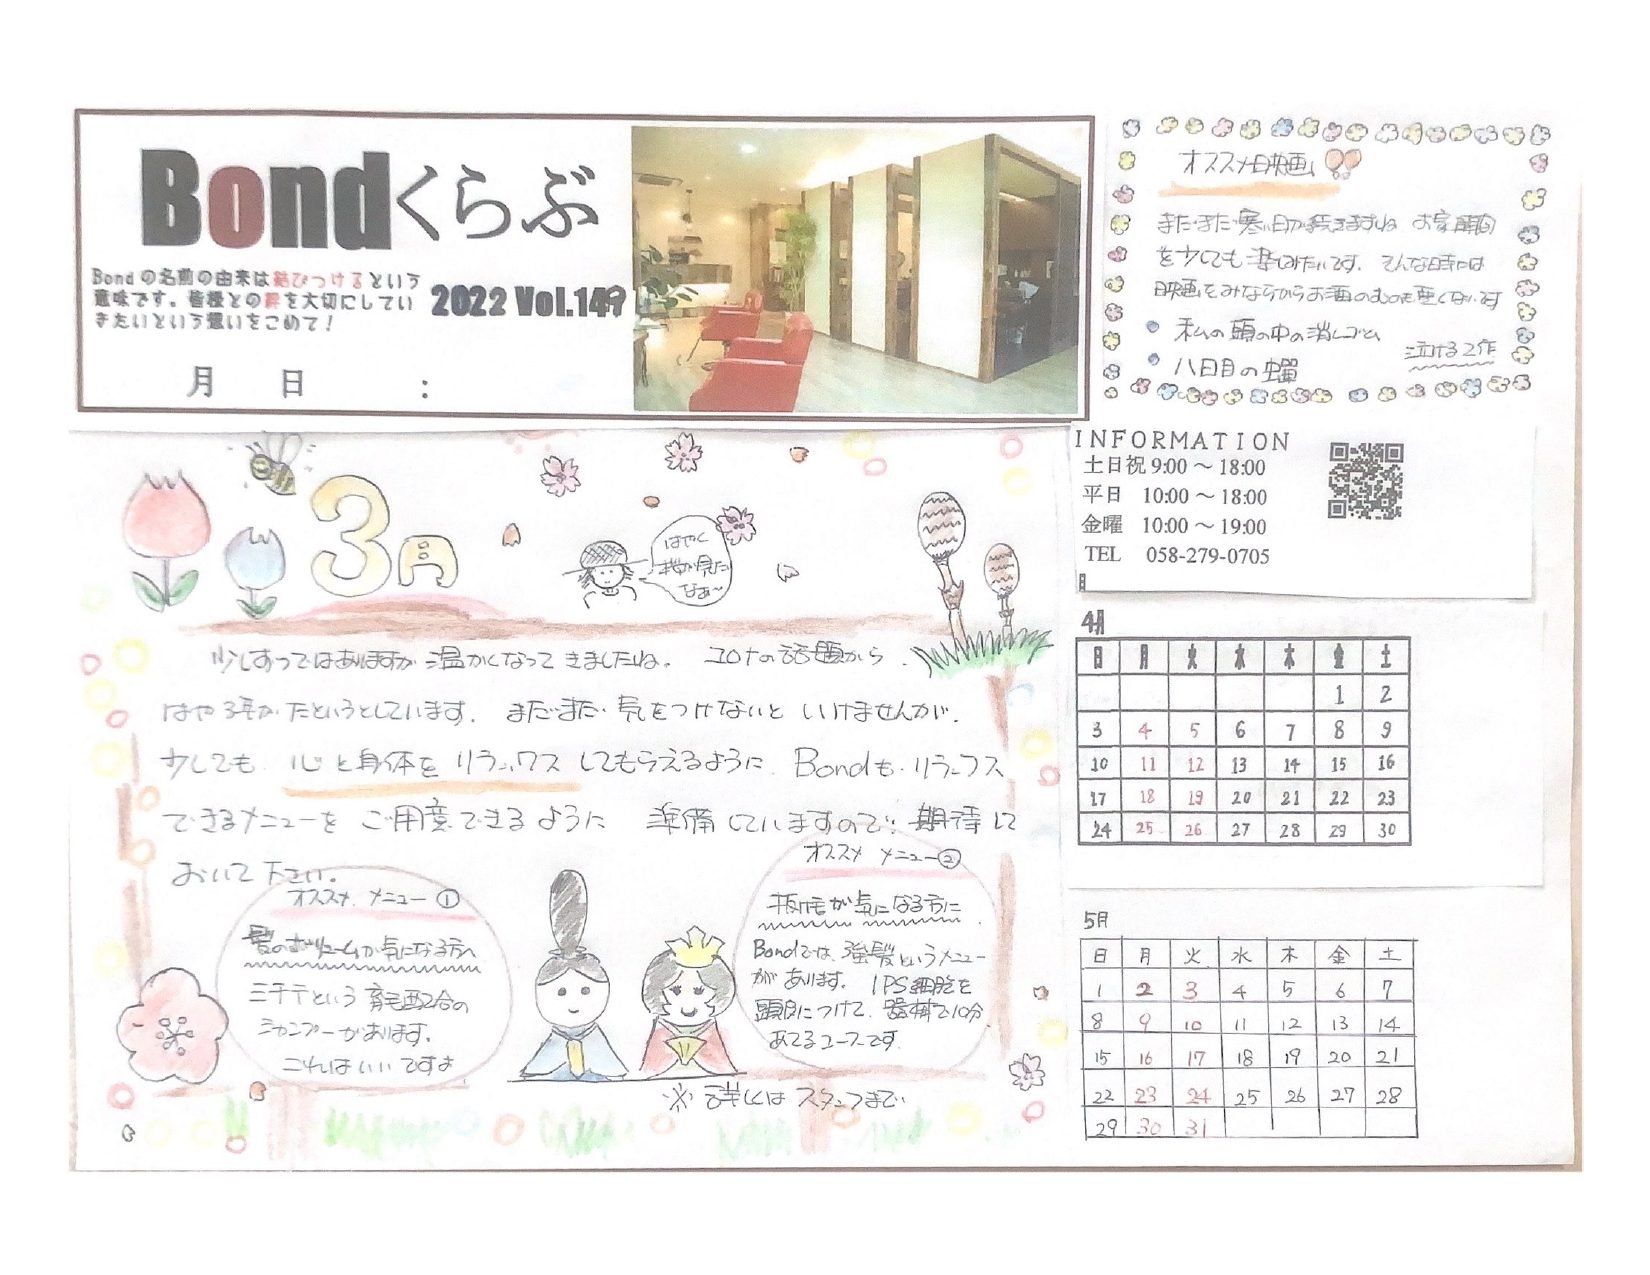 Bondくらぶ
Bondの名前の由来は結びつけるという
意味です。皆様との絆を大切にしてい
きたいという想いをこめて！
2022 Vol.149
月 日 :
オススメ映画
まだまだ寒い日が続きますね お家時間
を少しでも楽しみたいです。そんな時には
映画をみながらお酒のむのも悪くないです
・私の頭の中の消しゴム
・八日目の蝉
泣ける2作
INFORMATION
土日祝 9:00～18:00
平日 10:00～18:00
金曜 10:00～19:00
TEL 058-279-0705
3月
はやく
桜が見たい
なぁ～
少しずつではありますが温かくなってきましたね。コロナの話題から、
はや3年がたとうとしています。まだまだ気をつけないといけませんが、
少しでも心と身体をリラックスしてもらえるように、Bondもリラックス
できるメニューをご用意できるように 準備していますので!!期待して
おいて下さい。
オススメ メニュー①
髪のボリュームが気になる方へ
ミチテという育毛配合の
シャンプーがあります。
これはいいですよ
オススメ メニュー②
抜け毛が気になる方に
Bondでは、強髪というメニュー
があります。IPS細胞を
頭皮につけて、器械で10分
あてるコースです。
※詳しくはスタッフまで
4月
日 月 火 水 木 金 土
1 2
3 4 5 6 7 8 9
10 11 12 13 14 15 16
17 18 19 20 21 22 23
24 25 26 27 28 29 30
5月
日 月 火 水 木 金 土
1 2 3 4 5 6 7
8 9 10 11 12 13 14
15 16 17 18 19 20 21
22 23 24 25 26 27 28
29 30 31